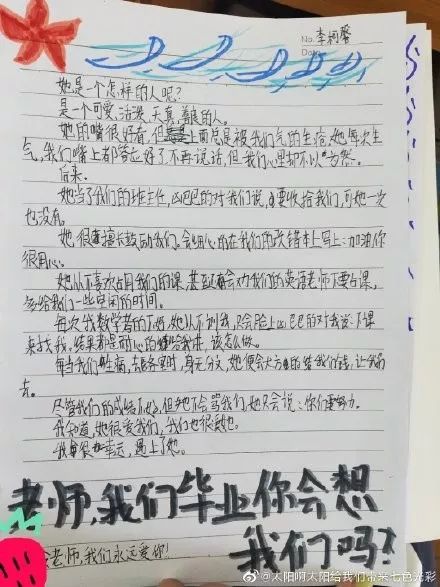 No. 李柯馨
Date
她是一个怎样的人呢？
是一个可爱，活泼，天真，善良的人。
她的嘴很好看，但上面总是被我们气的生疮，她每次生
气，我们嘴上都答应好了不再说话，但我们心里却不以为然。
后来，
她当了我们的班主任，凶巴巴的对我们说，要收拾我们，可她一次
也没有。
她很擅长鼓励我们。会细心的在我们的改错本上写上：加油你
很用心。
她从不喜欢占用我们的课，甚至还会劝我们的英语老师不要占课，
多给我们一些空闲的时间。
每次我数学考的不好，她从不训我，只会脸上凶巴巴的对我说下课
来找我，结果都是耐心的给我讲，该怎么做。
每当我们生病，去医务室时，身无分文，她便会大方的给我们钱，让我们
去。
尽管我们的成绩不好，但她不会骂我们，她只会说：你们要努力。
我知道，她很爱我们，我们也很爱她。
我很幸运，遇上了她。
老师，我们毕业你会想
我们吗？
老师，我们永远爱你！
@太阳啊太阳给我们带来七色光彩